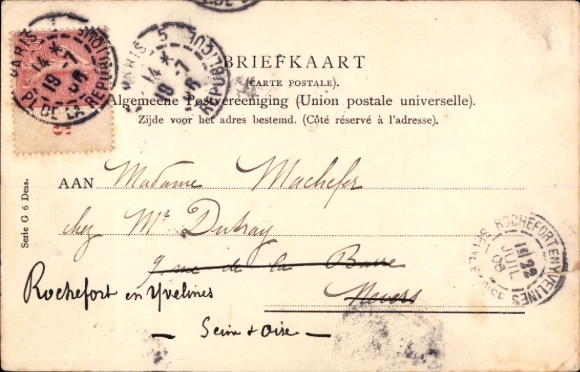 PARIS 5
14 * 19 -7 06
PL. DE LA REPUBLIQUE
PARIS 5
14 * 19 -7 06
REPUBLIQUE
5
BRIEFKAART
(CARTE POSTALE).
Algemeene Postvereeniging (Union postale universelle).
Zijde voor het adres bestemd. (Côté réservé à l'adresse).
Serie G 6 Dess.
AAN Madame Machefer
chez Mr Dutray
9 rue de la Barre
Nevers
Rochefort en Yvelines
Seine & Oise
ROCHEFORT EN YVELINES
22
JUIL
06